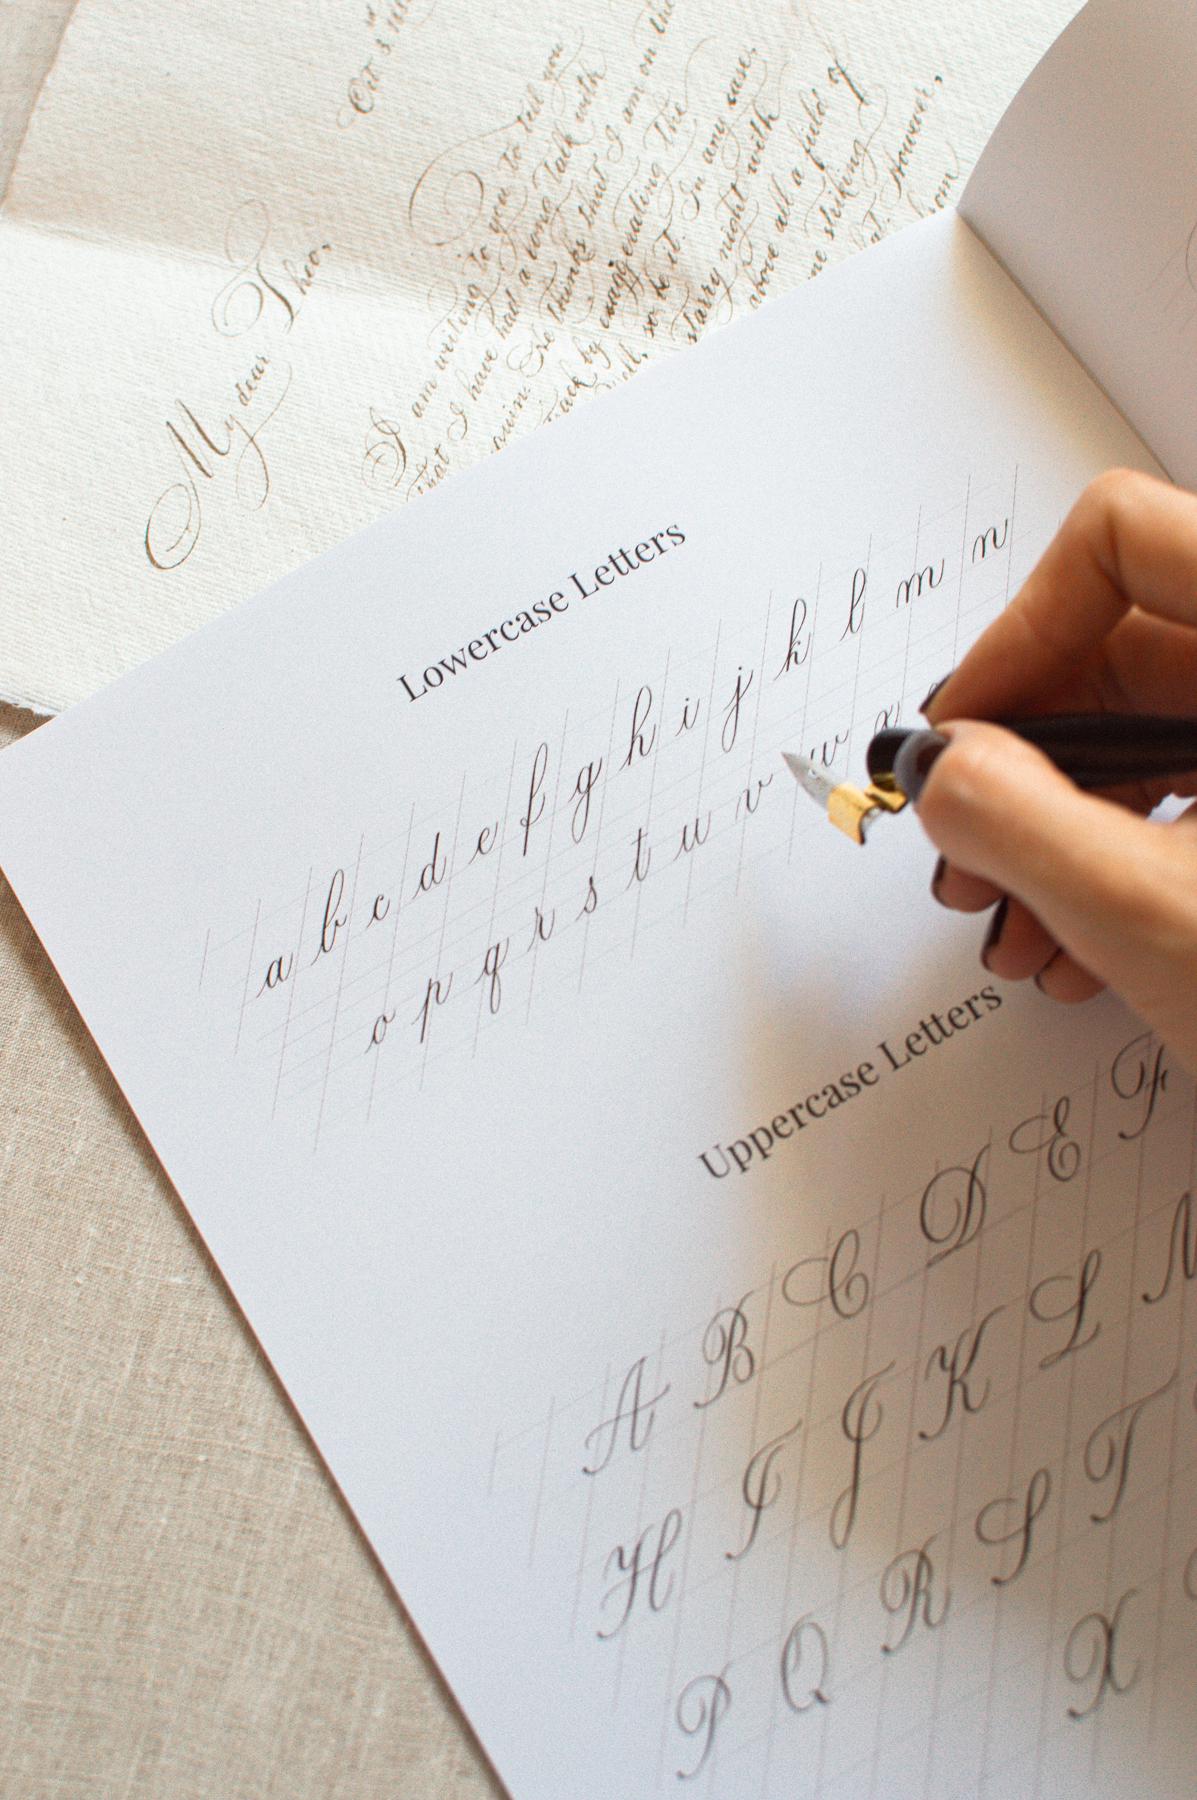 Oct 3,
My dear Theo,
I am writing to you to tell you
that I have had a long talk with
the thinks that I am on the
back by exaggerating the
well, so be it. In any case,
starry night with
above all a field of
striking
however,
from
Lowercase Letters
a b c d e f g h i j k l m n
o p q r s t u v w x
Uppercase Letters
A B C D E F
H I J K L
P Q R S T
X